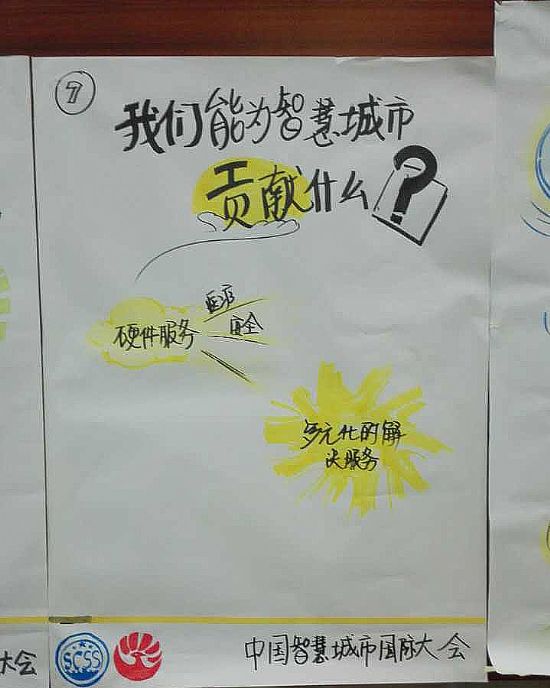 7
我们能为智慧城市
贡献什么?
医疗
安全
硬件服务
多元化的解
决服务
大会
SCSS
中国智慧城市国际大会